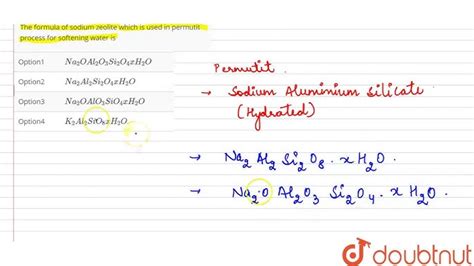 The formula of sodium zeolite which is used in permutit
process for softening water is
Option1 Na₂OAl₂O₃Si₂O₄xH₂O
Option2 Na₂Al₂Si₂O₄xH₂O
Option3 Na₂OAlO₃SiO₄xH₂O
Option4 K₂Al₂SiO₈xH₂O.
Permutit.
→ Sodium Aluminium Silicate
(Hydrated)
→ Na₂ Al₂ Si₂ O₈ . x H₂O .
→ Na₂·O Al₂O₃ Si₂O₄ . x H₂O .
doubtnut